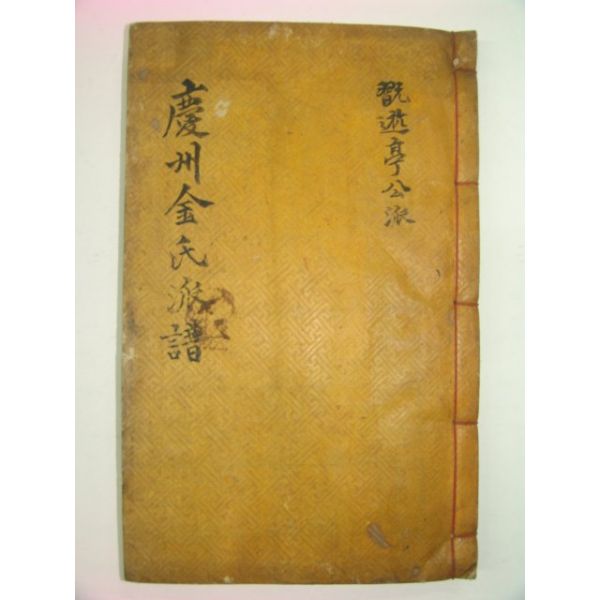 翫遊亭公派
慶州金氏派譜